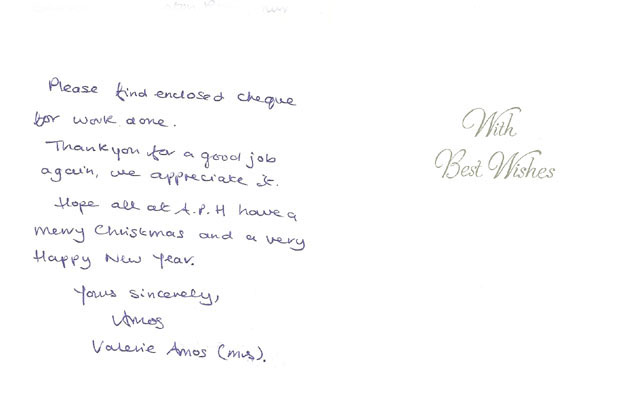 Please find enclosed cheque
for work done.
Thankyou for a good job
again, we appreciate it.
Hope all at A.P.H have a
merry Christmas and a very
Happy New Year.
Yours sincerely,
VAmos
Valerie Amos (mrs).
With
Best Wishes